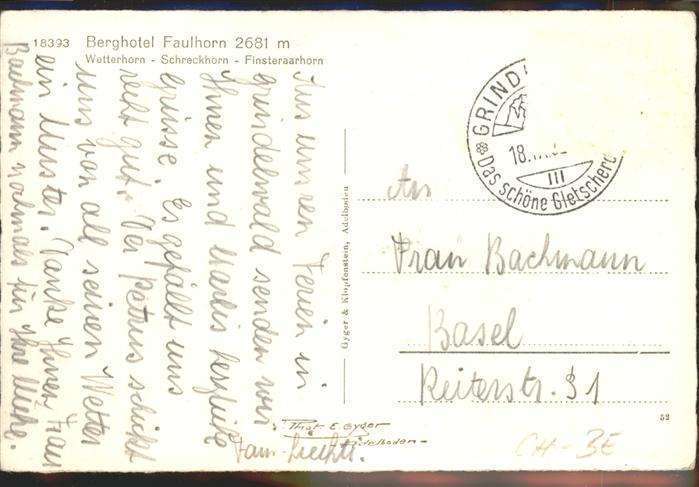 18393 Berghotel Faulhorn 2681 m
Wetterhorn - Schreckhorn - Finsteraarhorn
Aus unsren Ferien in
Grindelwald senden wir
Ihnen und Markus herzliche
Grüsse. Es gefällt uns
recht gut. Der Petrus schickt
uns von all seinen Wetter
ein Muster. Danke Ihnen Frau
Bachmann nochmals für Ihre Mühe.
Fam. Liechti.
Gyger & Klopfenstein, Adelboden
GRIND
18.
III
Das schöne Gletscherd
An
Frau Bachmann
Basel
Reiterstr. 31
52
Phot E. Gyger
Adelboden
CH-BE